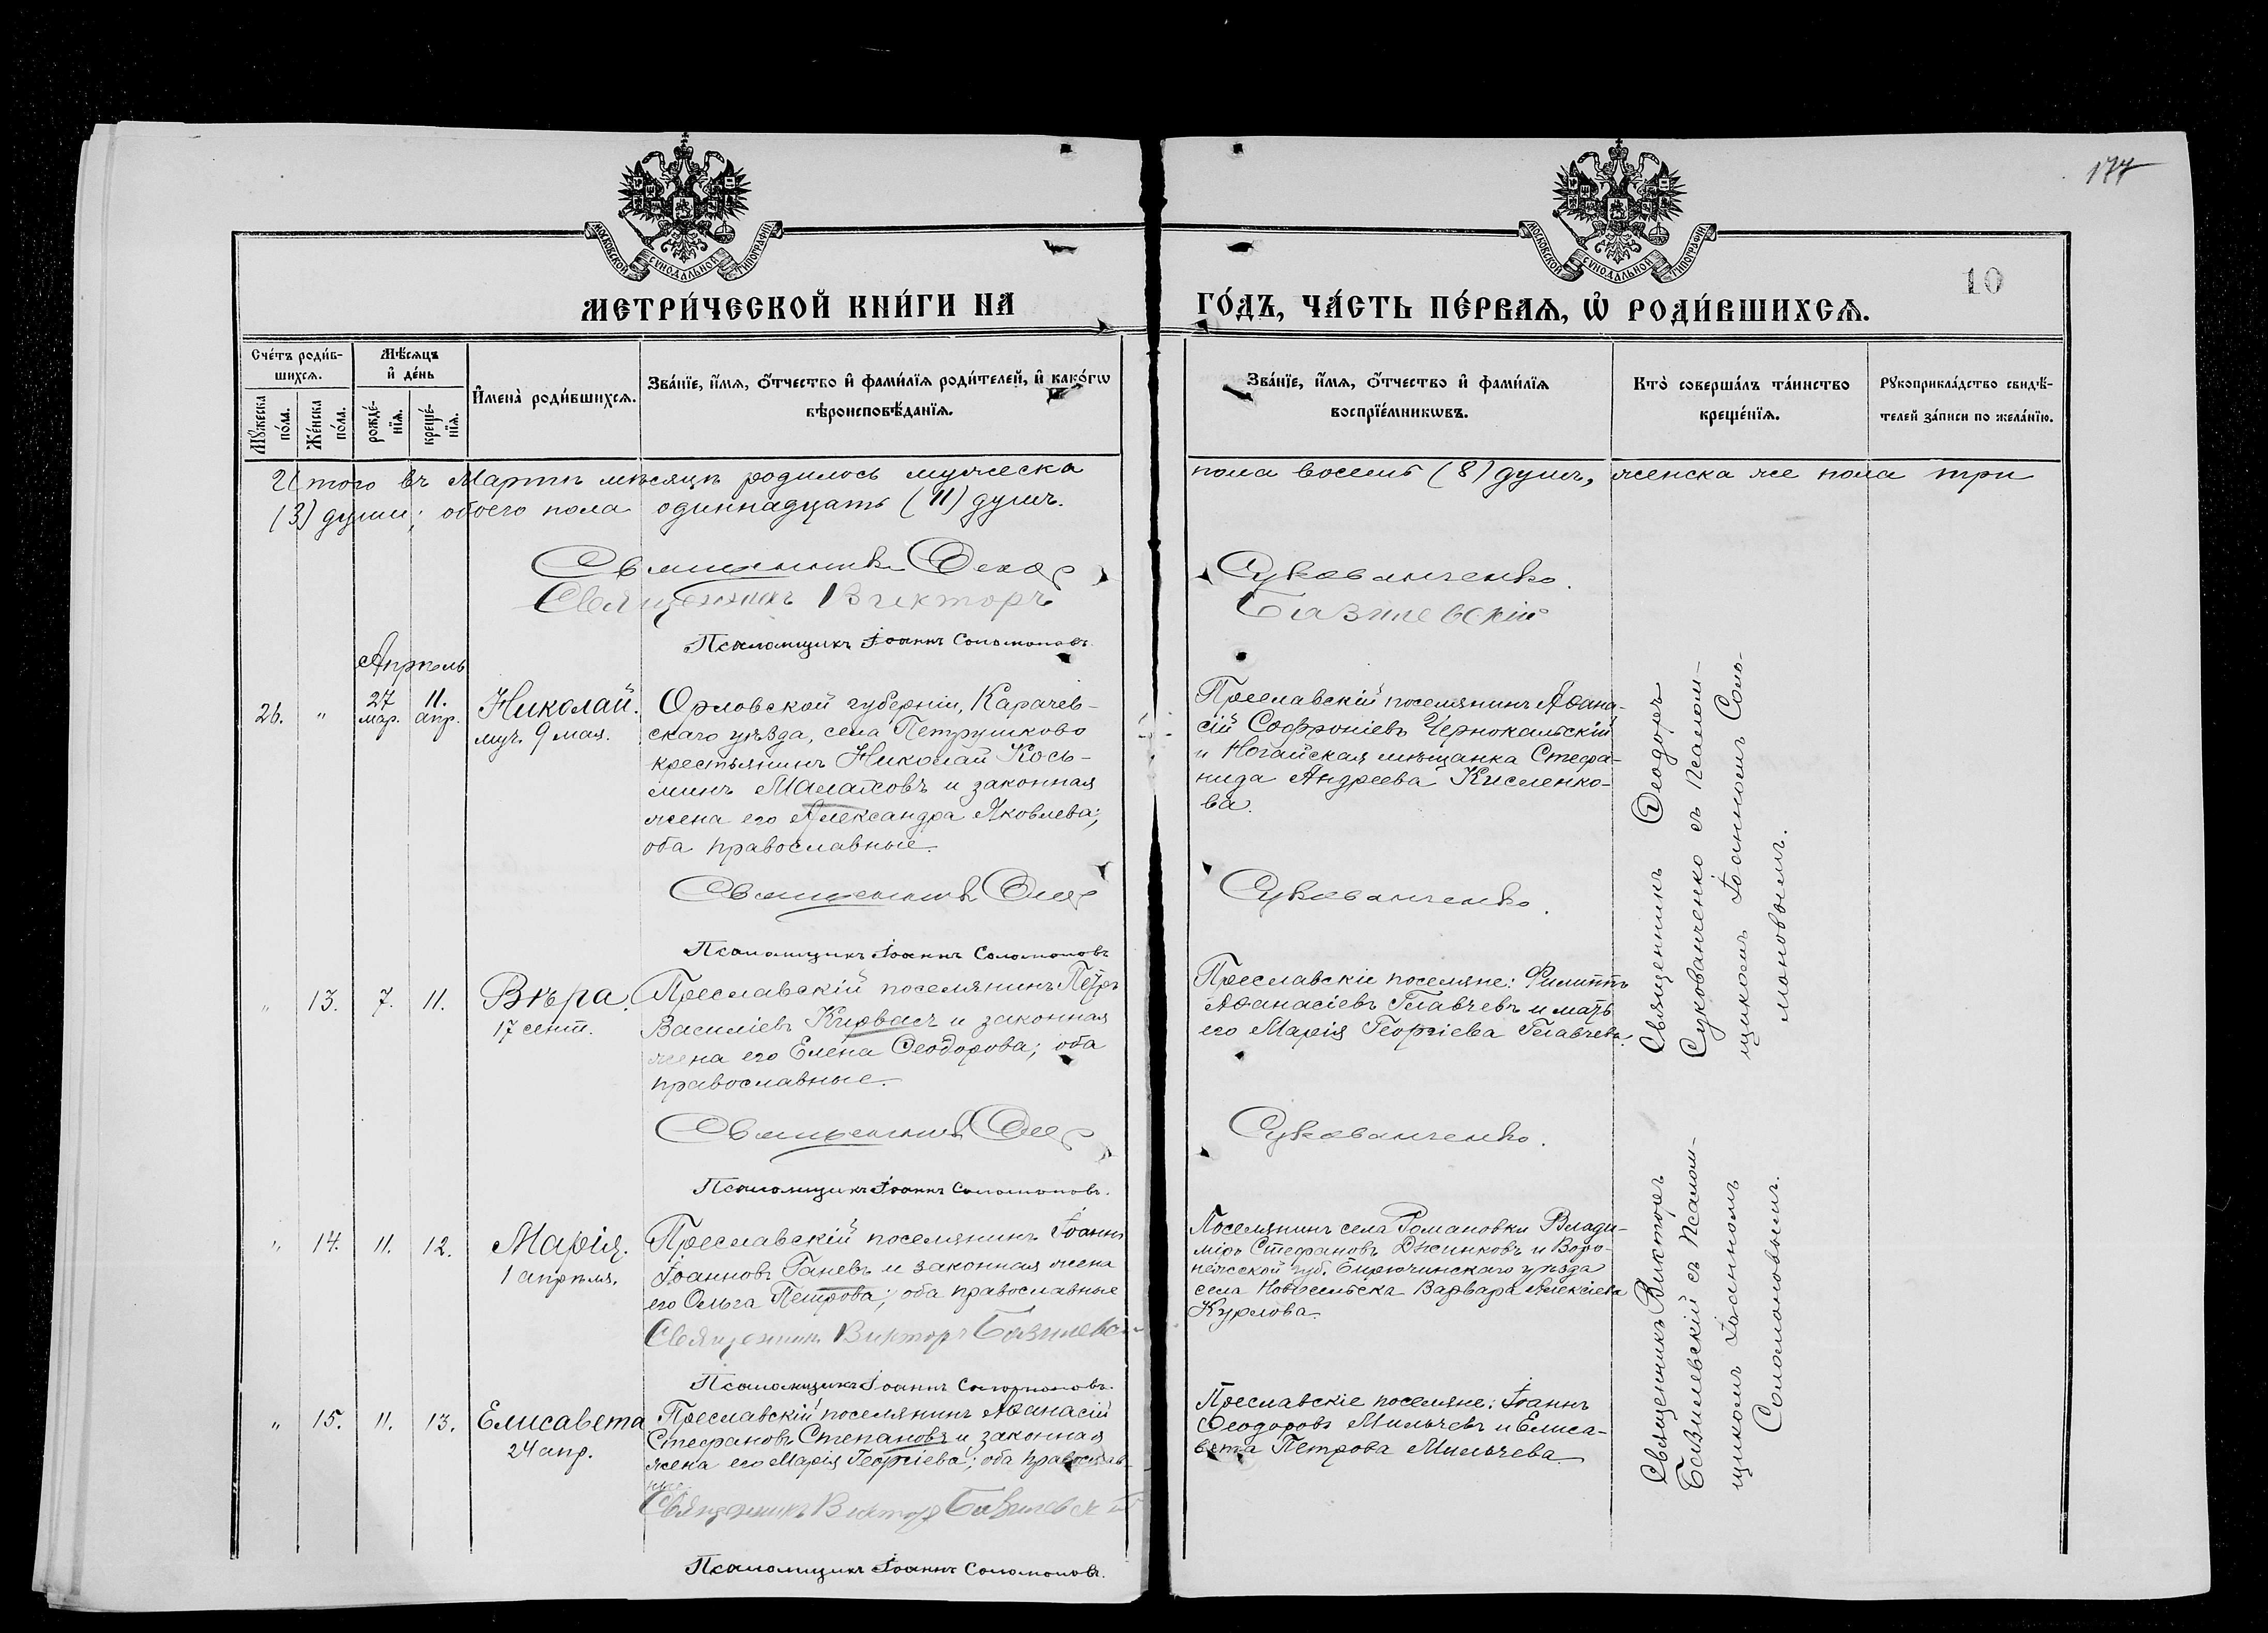 177
МОСКОВСКОЙ СѴНОДАЛЬНОЙ ТИПОГРАФІИ
МОСКОВСКОЙ СѴНОДАЛЬНОЙ ТИПОГРАФІИ
10
МЕТРИ́ЧЕСКОЙ КНИ́ГИ НА
ГО́ДЪ, ЧА́СТЬ ПЕ́РВАѦ, Ѡ҆ РОДИ́ВШИХСѦ.
Сче́тъ роди́в-
шихсѧ.
Мѣ́сѧцъ
и҆ де́нь
Мꙋ́жеска
по́ла.
Же́нска
по́ла.
рожде́-
нїѧ.
креще́-
нїѧ.
И҆мена̀ роди́вшихсѧ.
Зва́нїе, и҆́мѧ, ѻ҆́тчество и҆ фами́лїѧ роди́телей, и҆ како́гѡ
вѣроисповѣ́данїѧ.
Зва́нїе, и҆́мѧ, ѻ҆́тчество и҆ фами́лїѧ
воспрїе́мникѡвъ.
Кто̀ соверша́лъ та́инство
креще́нїѧ.
Рꙋкоприкла́дство свидѣ́-
телей за́писи по жела́нїю.
Итого въ Мартѣ мѣсяцѣ родилось мужеска пола восемь (8) душъ, женска же пола три
(3) души; обоего пола одиннадцать (11) душъ.
Священникъ Ѳеодоръ Сукованченко.
Священникъ Викторъ Базилевскій
Псаломщикъ Іоаннъ Соломоновъ.
Апрѣль
26. " 27 мар. 11. апр.
Николай.
муч. 9 мая.
Орловской губерніи, Карачев-
скаго уѣзда, села Петрушково
крестьянинъ Николай Кось-
минъ Малаховъ и законная
жена его Александра Яковлева;
оба православные.
Преславскій поселянинъ Аѳана-
сій Софроніевъ Чернокальскій
и Ногайская мѣщанка Стефа-
нида Андреева Кисленко-
ва.
Священникъ Ѳеодоръ
Сукованченко съ псалом-
щикомъ Іоанномъ Соло-
моновымъ.
Священникъ Ѳеод Сукованченко.
Псаломщикъ Іоаннъ Соломоновъ
" 13. 7. 11.
Вѣра.
17 сент.
Преславскій поселянинъ Петръ
Василіевъ Кирвасъ и законная
жена его Елена Ѳеодорова; оба
православные.
Преславскіе поселяне: Филиппъ
Аѳанасіевъ Главчевъ и мать
его Марія Георгіева Главчева.
Священникъ Ѳеод Сукованченко.
Псаломщикъ Іоаннъ Соломоновъ.
" 14. 11. 12.
Марія.
1 апрѣля.
Преславскій поселянинъ Іоаннъ
Іоанновъ Ганевъ и законная жена
его Ольга Петрова; оба православные
Поселянинъ села Романовки Влади-
міръ Стефановъ Джинковъ и Воро-
нежской губ. Бирючинскаго уѣзда
села Варвара Алексіева
Курлова.
Священникъ Викторъ
Базилевскій съ псалом-
щикомъ Іоанномъ
Соломоновымъ.
Священникъ Викторъ Базилевск
Псаломщикъ Іоаннъ Соломоновъ.
" 15. 11. 13.
Елисавета
24 апр.
Преславскій поселянинъ Аѳанасій
Стефановъ Степановъ и законная
жена его Марія Георгіева; оба православ-
ные.
Преславскіе поселяне: Іоаннъ
Ѳеодоровъ Мильчевъ и Елиса-
вета Петрова Мильчева.
Священникъ Викторъ Базилевскій
Псаломщикъ Іоаннъ Соломоновъ.